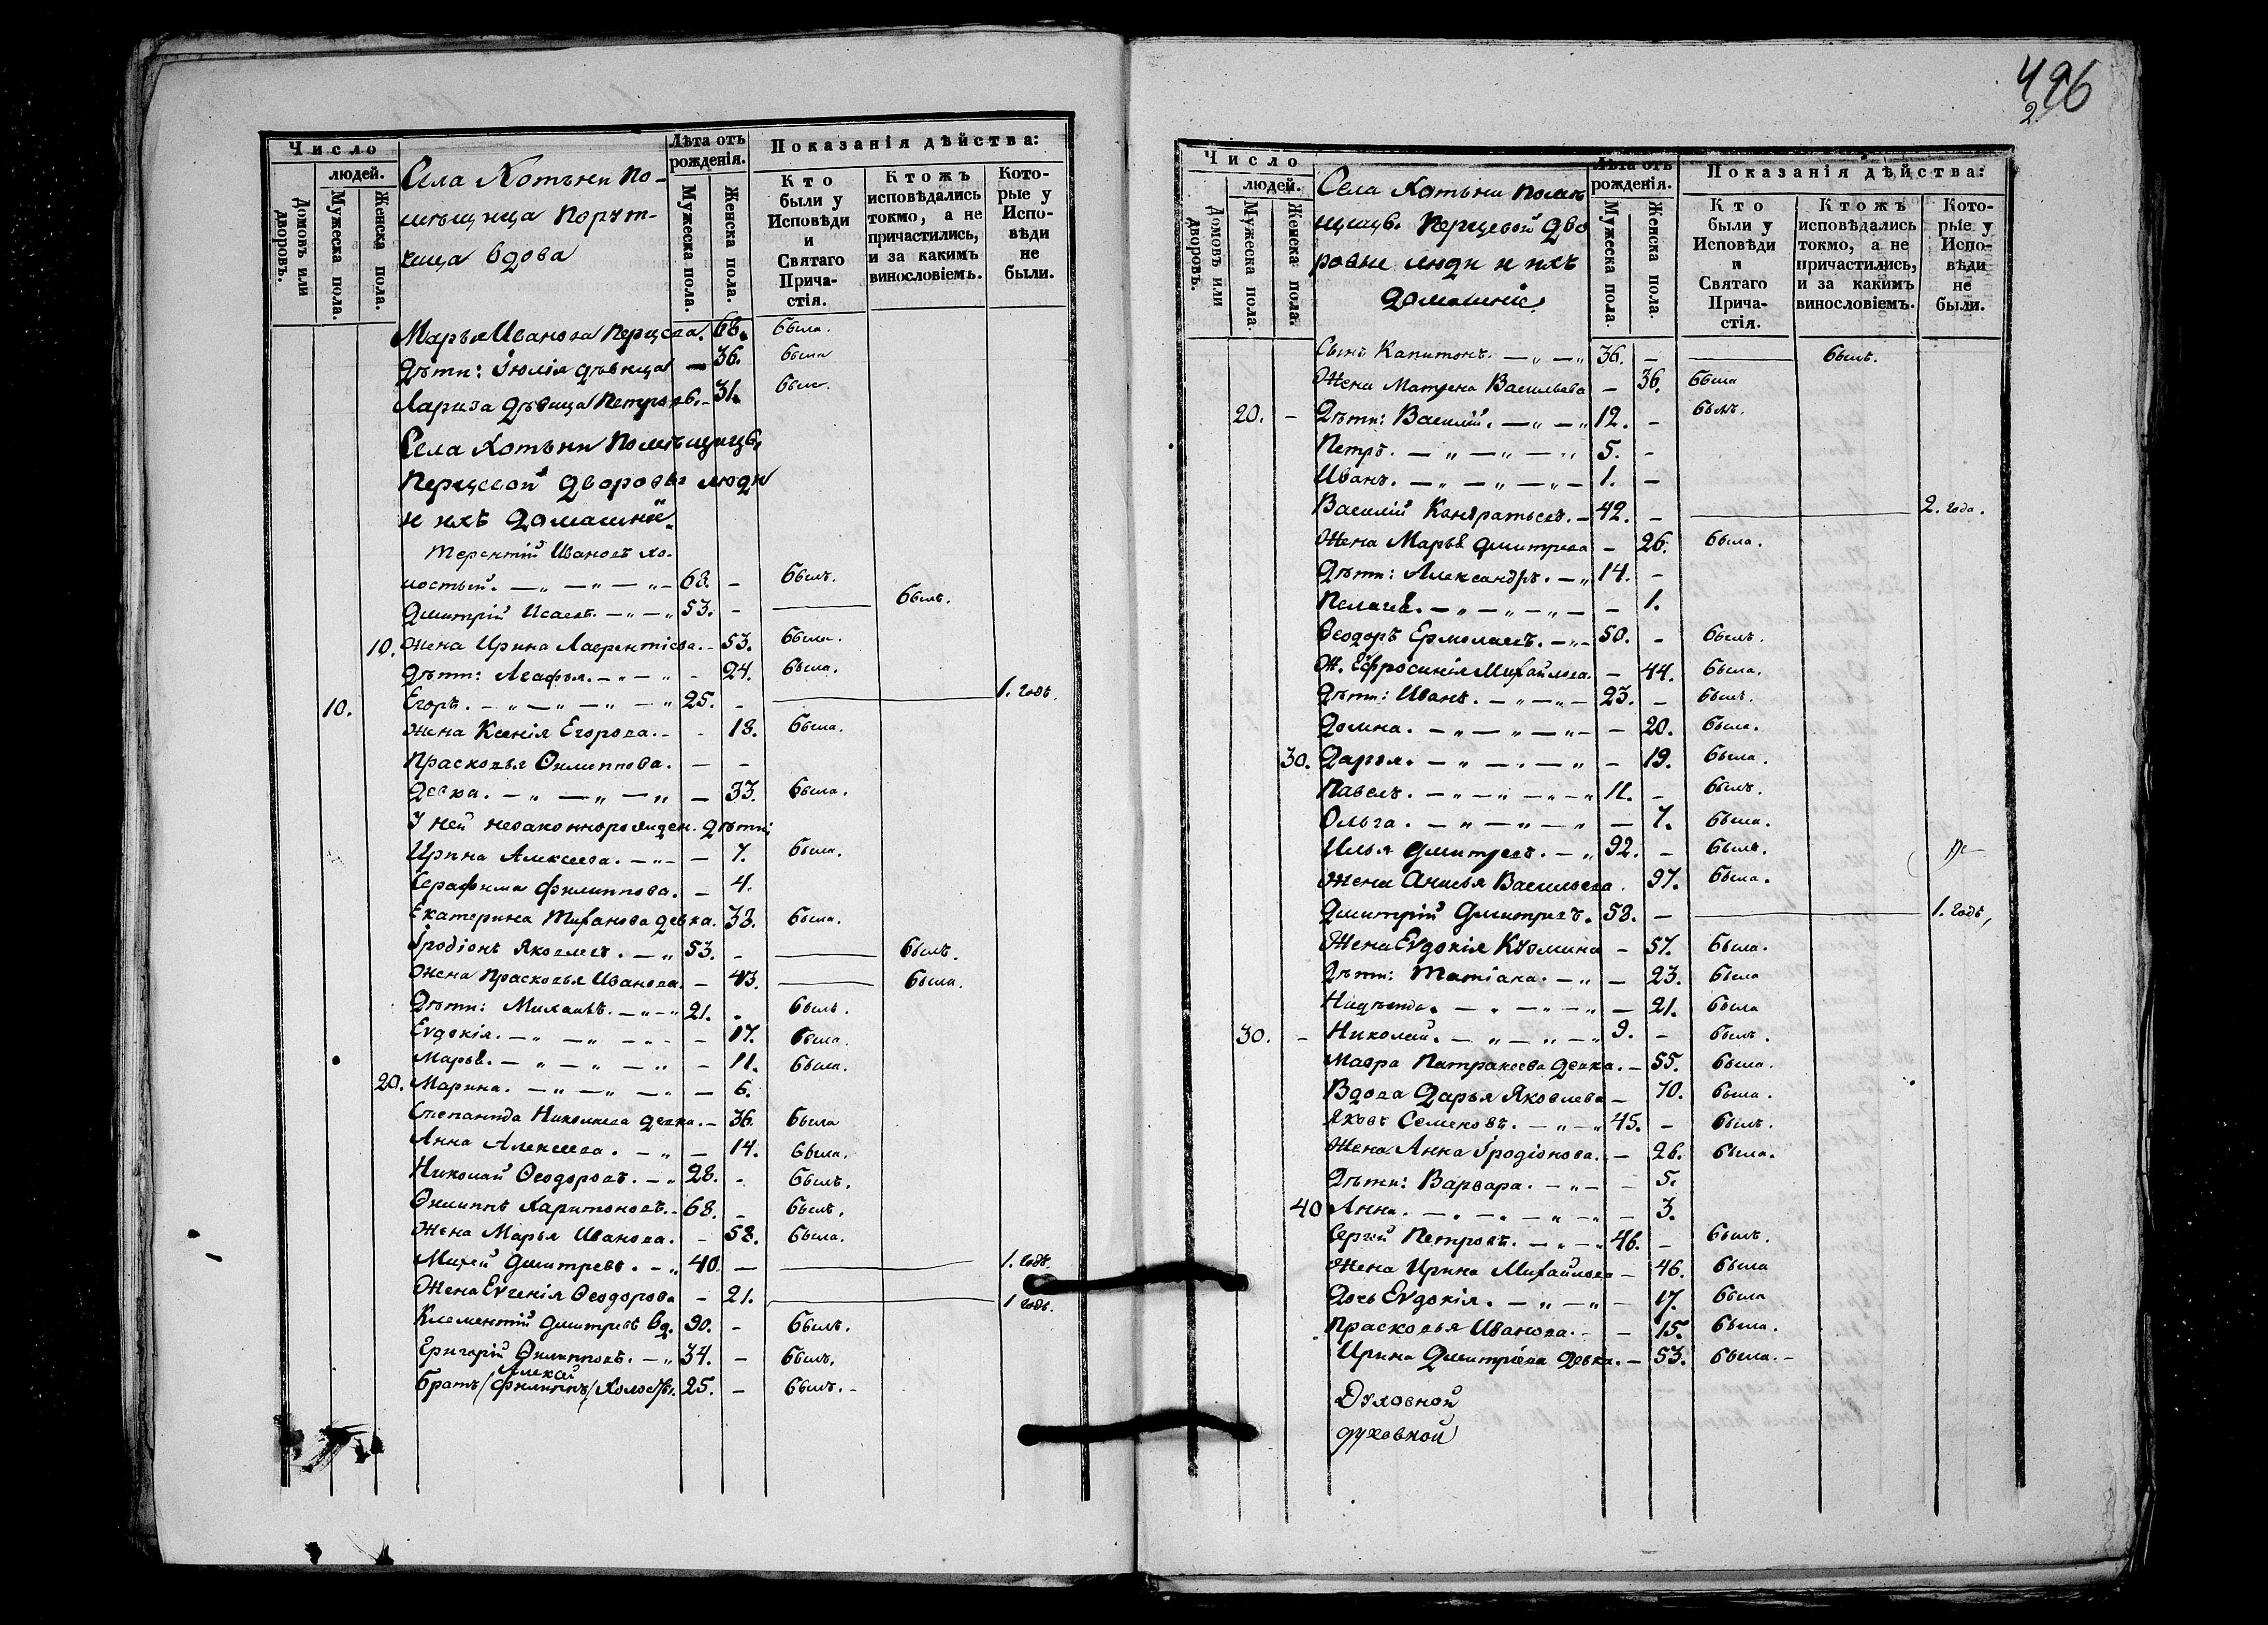 496
2
Число
людей.
Домовъ или дворовъ.
Мужеска пола.
Женска пола.
Села Хотѣни По-
мѣщица Порут-
чица вдова
Лѣта отъ рожденія.
Мужеска пола.
Женска пола.
Показанія дѣйства:
Кто были у Исповѣди и Святаго Прича- стія.
Ктожъ исповѣдались токмо, а не причастились, и за какимъ винословіемъ.
Кото- рые у Испо- вѣди не были.
Марья Иванова Перцева. 68. была.
Дѣти: Іюлія дѣвица — 36. была
Лариса дѣвица Петровъ. - 31. была.
Села Хотѣни Помѣщицы
Перцевой дворовы люди
и ихъ домашніи.
Терентій Ивановъ хо-
лостый. — „ — „ — „ - 68. - былъ.
Дмитрій Исаевъ. — „ — „ 53. - былъ.
10. Жена Ирина Лаврентіева. - 53. была.
Дѣти: Агафья. — „ — „ - 24. была.
10. Егоръ. — „ — „ — „ — „ 25. - 1. годъ.
Жена Ксенія Егорова. - - 18. была.
Прасковья Филиппова. — —
Девка. — „ — „ — „ — 33. была.
У ней незаконнорожден. дѣти:
Ирина Алексеева. — „ — — 7. была.
Серафима Филиппова. — 4.
Екатерина Тифанова девка. 38. была.
Іродіонъ Яковлевъ. — „ 53. - былъ.
Жена Прасковья Иванова. — 43. была.
Дѣти: Михаилъ. — „ — „ 21. - былъ.
Еѵдокія. — „ — „ — „ - — 17. была.
Марья. — „ — „ — „ — 11. была.
20. Марина. — „ — „ — „ — 6.
Степанида Николаева девка. — 36. была
Анна Алексеева. — „ — 14. была.
Николай Ѳеодоровъ. — „ 28. - былъ.
Филиппъ Харитоновъ. - 68. - былъ.
Жена Марья Иванова. - 58. была.
Михей Дмитревъ. — „ 40. — 1. годъ.
Жена Евгенія Ѳеодорова - 21. 1 годъ.
Климентій Дмитревъ вд. 90. - былъ.
Григорій Филипповъ. — „ 34. — былъ.
Алекей
Братъ (Филиппъ) Холос. 25. — былъ. -
Число
людей.
Домовъ или дворовъ.
Мужеска пола.
Женска пола.
Села Хотѣни помѣ
щицы. Перцевой дво
ровые люди и ихъ
домашніе
Лѣта отъ рожденія.
Мужеска пола.
Женска пола.
Показанія дѣйства:
Кто были у Исповѣди и Святаго Прича- стія.
Ктожъ исповѣдались токмо, а не причастились, и за какимъ винословіемъ.
Кото- рые у Испо- вѣди не были.
Сынъ Капитонъ. — „ — „ 36. - былъ.
Жена Матрена Васильева — 36. была
20. - Дѣти: Василій. — „ — „ 12. - былъ.
Петръ. — „ — „ — „ 5. -
Иванъ. — „ — „ — „ — 1. -
Василій Кондратьевъ. - 42. - 2. года.
Жена Марья Дмитрева — 26. была.
Дѣти: Александръ. — „ 14. -
Пелагея. — „ — „ — „ — - 1.
Ѳеодоръ Ермолаевъ. — „ - 50. - былъ.
Ж. Ефросинія Михайлова. — 44. была.
Дѣти: Иванъ. — „ — „ — 23. - былъ.
Домна. — „ — „ — „ - — 20. была.
30. Дарья. — „ — „ — „ — 19. была.
Павелъ. — „ — „ — „ — „ 11. - былъ.
Ольга. — „ — „ — „ — 7. была.
Илья Дмитревъ. — „ 92. - былъ.
Жена Анисья Васильева. 97. была.
Дмитрій Дмитревъ. 58. - 1. годъ,
Жена Еѵдокія Кузмина — 57. была.
Дѣти: Татіана. — „ — 23. была
Надежда. — „ — „ — „ — 21. была
30. - Николай. — „ — „ — 9. - былъ.
Мавра Патракеева девка. — 55. была.
Вдова Дарья Яковлева — 70. была.
Яковъ Семеновъ. — „ — „ 45. - былъ.
Жена Анна Іродіонова. — 26. была.
Дѣти: Варвара. — „ — — 5.
40 Анна. — „ — „ — „ — „ — 3.
Сергѣй Петровъ. — „ — „ 46. - былъ.
Жена Ирина Михайлова — 46. была
Дочь Еѵдокія. — „ — „ — 17. была
Прасковья Иванова. - — 15. была.
Ирина Дмитріева девка. — 53. была. -
Духовной
духовной